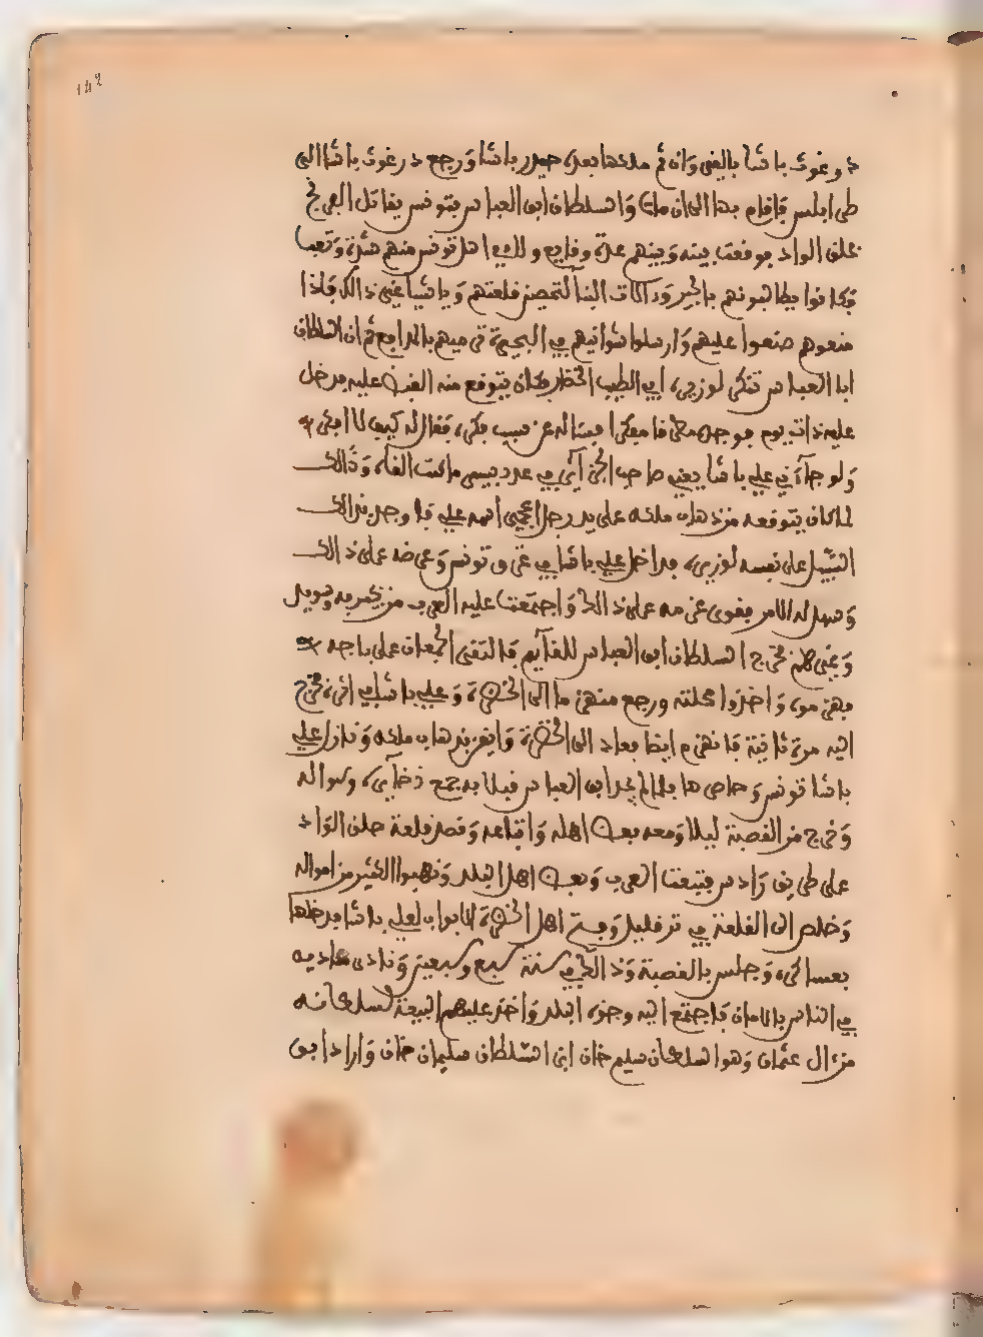 ١٤٢
درغوث باشا بالقيروان ثم ملكها بعده حيدر باشا ورجع درغوث باشا الى
طرابلس فاقام بها الى ان مات والسلطان ابى العباس بتونس يقاتل الفرنج
بحلق الواد فوقعت بينه وبينهم عدة وقايع ولقي اهل تونس منهم شدة وتعبا
وكانوا يطالبونهم بالجير والات البنا لتحصين قلعتهم وياشيا غير ذالك فاذا
منعوهم صنعوا عليهم وارسلوا شوانيهم في البحيرة ترميهم بالمدافع ثم ان السلطان
ابا العباس تنكر لوزيره ابي الطيب الخضار وكان يتوقع منه القبض عليه فدخل
عليه ذات يوم فوجده مطرقا مفكرا فسئاله عن سبب فكره فقال له كيف لا افكر
ولو جاءني علي باشا يعني صاحب الجزائر في عدد يسير ملكت القاه وذالك
لما كان يتوقعه من ذهاب ملكه على يد رجل اعجمي اسمه علي فلما وجد بذالك
السبيل على نفسه لوزيره فداخل علي باشا في غزو تونس وعرضه على ذالك
وسهل له الامر فقوى عزمه على ذالك واجتمعت عليه العرب من يحسر به وحوبل
وغيرهم فخرج السلطان ابى العباس للقايهم فالتقى الجمعان على باجه
فهزموه واخذوا محلته ورجع منهزما الى الحضرة وعلي باشا في اثره فخرج
اليه مرة ثانية فانهزم ايضا فعاد الى الحضرة وايقن بذهاب ملكه ونازل علي
باشا تونس وحاصرها فلما لم يجد ابى العباس قبلا به جمع ذخايره وامواله
وخرج من القصبة ليلا ومعه بعض اهله واتباعه وقصد قلعة حلق الواد
على طريق رادس فتبعت العرب وبعض اهل البلد ونهبوا الكثير من امواله
وخلص الى القلعة في نزر قليل وفتح اهل الحضرة الابواب لعلي باشا فدخلها
بعساكره وجلس بالقصبة وذالك في سنة سبع وسبعين ونادى مناديه
في الناس بالامان فاجتمع اليه وجوه البلد واخذ عليهم البيعة لسلطانه
من ءال عثمان وهو السلطان سليم خان ابن السلطان سليمان خان واراد ابى